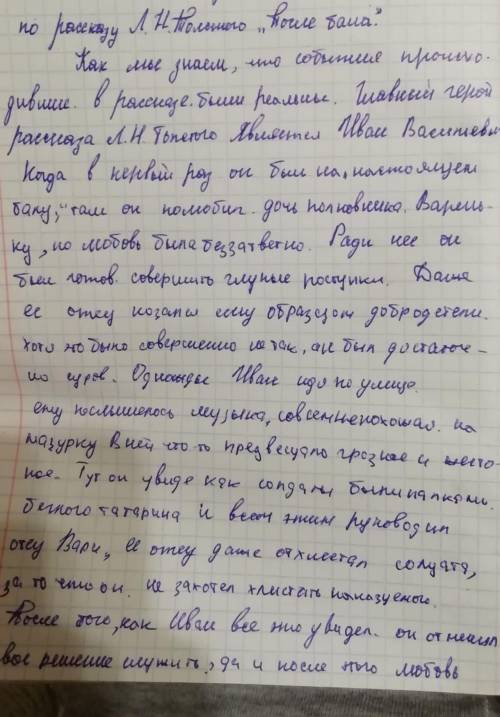 по рассказу Л.Н.Толстого „После бала".
Как мы знаем, что события происхо-
дившие в рассказе были реальные. Главный герой
рассказа Л.Н.Толстого является Иван Васильевич
Когда в первый раз он был на „настоящем
балу," там он полюбил дочь полковника. Варень-
ку, но любовь была беззатветно. Ради неё он
был готов совершить глупые поступки. Даже
её отец казался ему образцом добродетели.
хотя это было совершенно не так, он был достаточ-
но суров. Однажды Иван идя по улице.
ему послышелось музыка, совсем непохожая на
мазурку в ней что-то предвещало грозное и жесто-
кое. Тут он увиде как солдаты били палками.
беглого татарина и всем этим руководил
отец Вари, её отец даже отхлестал солдата,
за то что он не захотел хлыстать наказуемого.
После того, как Иван все это увидел он отменил
вое решение служить, да и после того любовь